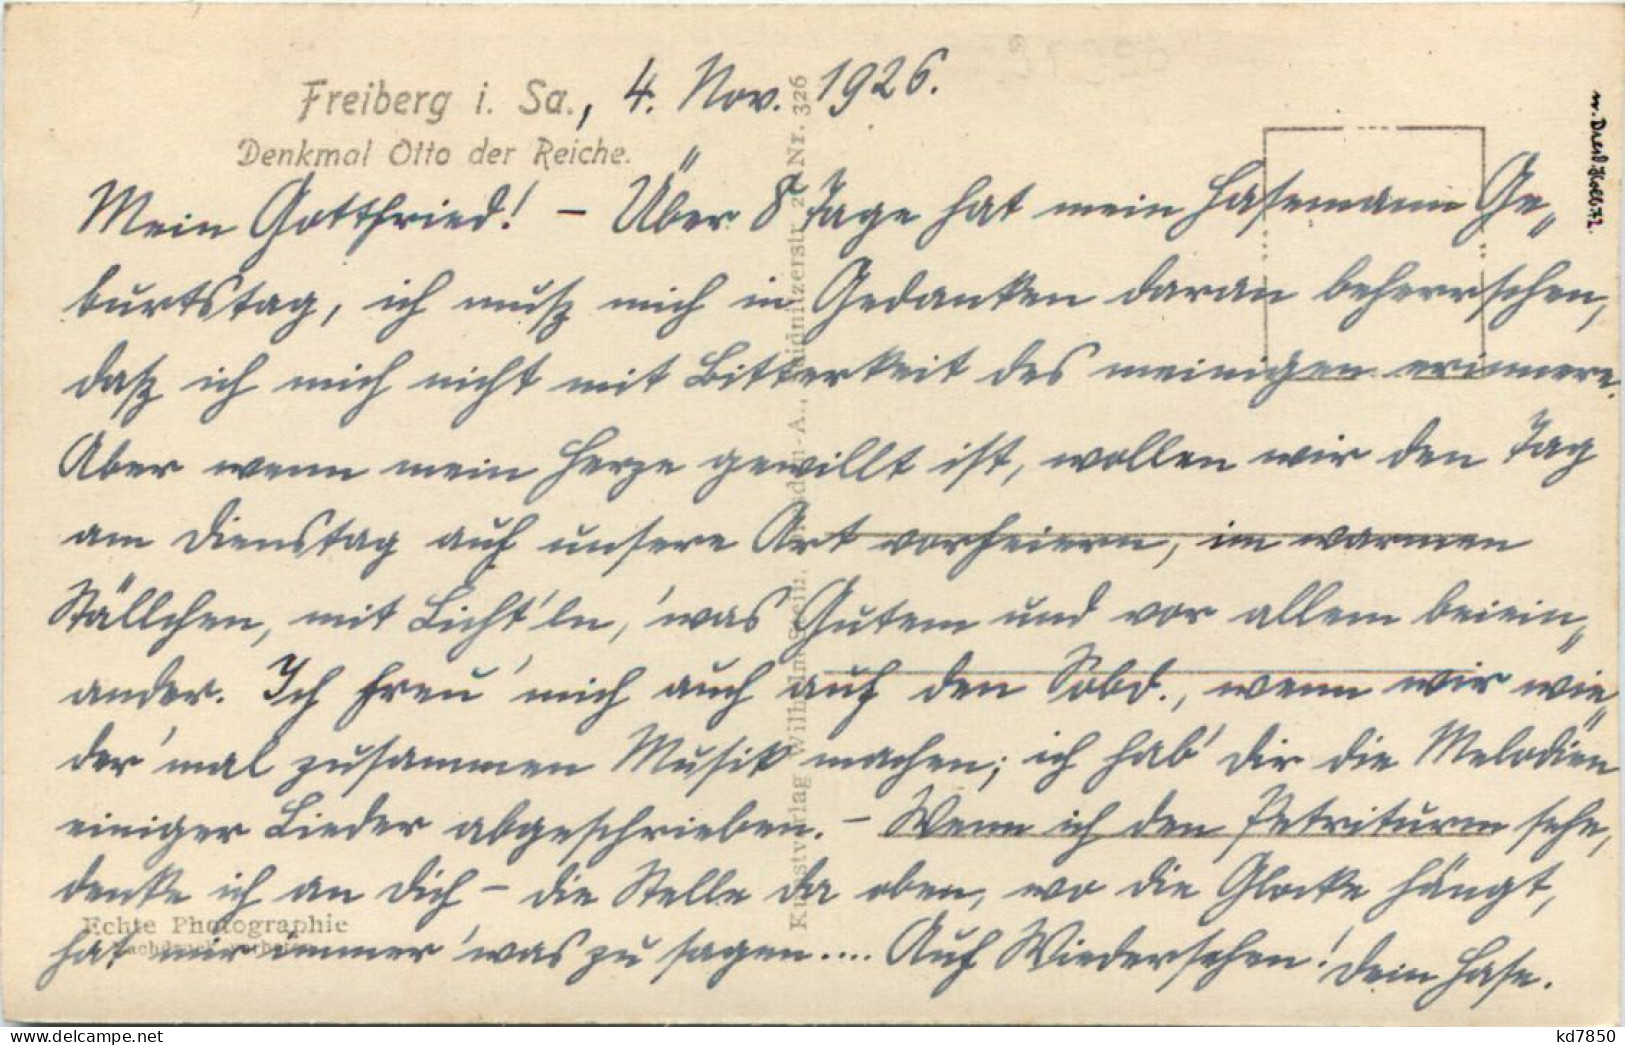 Freiberg i. Sa., 4. Nov. 1926.
Denkmal Otto der Reiche.
Mein Gottfried! – Über 8 Tage hat mein Hasemann Ge„
burtstag, ich muß mich in Gedanken daran beherrschen,
daß ich mich nicht mit Bitterkeit des meinigen erinnere.
Aber wenn mein Herze gewillt ist, wollen wir den Tag
am Dienstag auf unsere Art vorfeiern, im warmen
Ställchen, mit Licht'ln, 'was Gutem und vor allem beiein„
ander. Ich freu' mich auch auf den Sobd., wenn wir wie„
der 'mal zusammen Musik machen; ich hab' dir die Melodien
einiger Lieder abgeschrieben. – Wenn ich den Petriturm sehe,
denke ich an dich – die Stelle da oben, wo die Glocke hängt,
hat mir immer 'was zu sagen.... Auf Wiedersehen! Dein Hase.
Echte Photographie
Nachdruck verboten
Kunstverlag Wilhelm
Nr. 326
kd7850